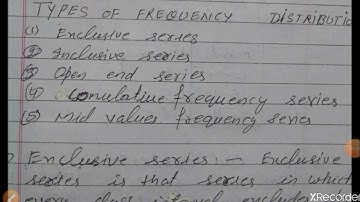 TYPES OF FREQUENCY DISTRIBUTIO
(1) Exclusive series
(2) Inclusive series
(3) Open end series
(4) Conulative frequency series
(5) Mid values frequency series
Exclusive series:- Exclusive
series is that series in which
every class interval excludes
XRecorder